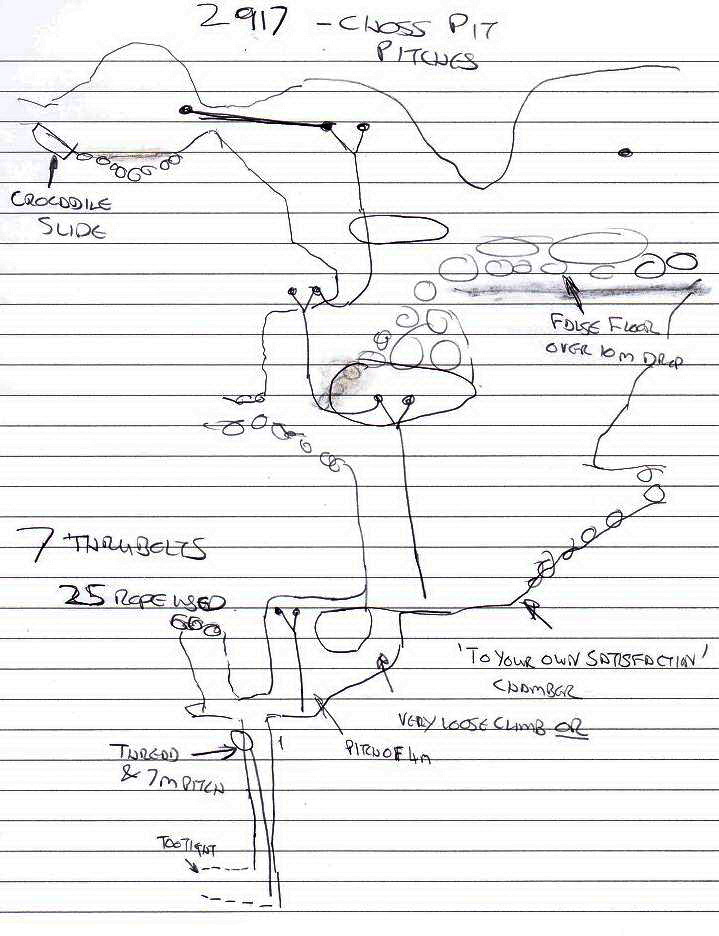 2917 - CHOSS PIT
PITCHES
CROCODILE
SLIDE
FALSE FLOOR
OVER 10M DROP
7 THRUBOLTS
25 ROPE USED
'TO YOUR OWN SATISFACTION'
CHAMBER
VERY LOOSE CLIMB OR
PITCH OF 4M
THREAD
& 7M PITCH
TOO TIGHT